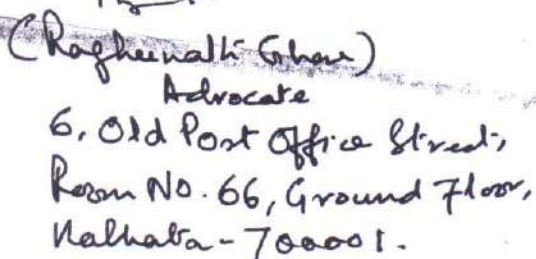 (Raghunath Ghose)
Advocate
6, Old Post Office Street,
Room No. 66, Ground Floor,
Kolkata - 700001.